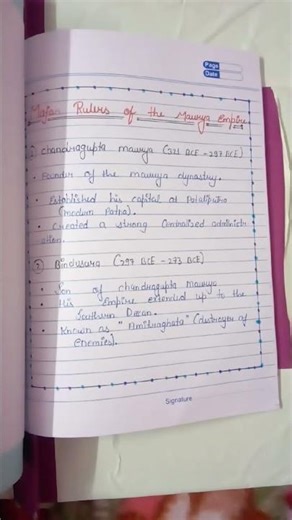 Page
Date
Major Rulers of the Maurya Empire
1) Chandragupta maurya (321 BCE - 297 BCE)
• Founder of the maurya dynastry.
• Established his capital at Patalipu
(modern Patna).
• Created a strong Centralised administr
ation.
2) Bindusara (297 BCE - 273 BCE)
• Son of chandragupta maurya
• His Empire extended up to the
Southern Decan.
• Known as "Amitraghata" (destroyer of
Enemies).
Signature